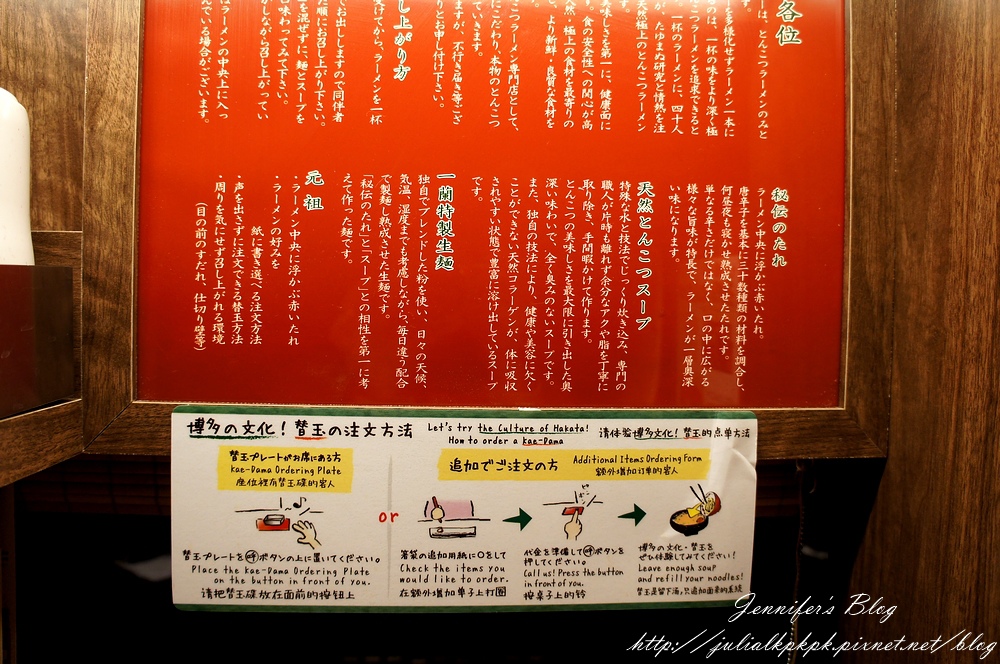 各位
は、とんこつラーメンのみと
多様化せずラーメン一本に
のは、一杯の味をより深く極
ラーメンを追求できると
一杯のラーメンに、四十人
が、たゆまぬ研究と情熱を注
天然極上のとんこつラーメン
美味しさを第一に、健康面に
す。食の安全性への関心が高
天然・極上の食材を最寄りの
、より新鮮・良質な食材を
こつラーメン専門店として、
にこだわり、本物のとんこつ
ていきます。
ますが、不行き届き等ござ
りとお申し付け下さい。
し上がり方
受けてから、ラーメンを一杯
でお出ししますので同伴者
た順にお召し上がり下さい。
を混ぜずに、麺とスープを
味わってみて下さい。
かしながら召し上がってい
はラーメンの中央上に入っ
ている場合がございます。
秘伝のたれ
ラーメン中央に浮かぶ赤いたれ。
唐辛子を基本に三十数種類の材料を調合し、
何昼夜も寝かせ熟成させたたれです。
単なる辛さだけではなく、口の中に広がる
様々な旨味が特長で、ラーメンが一層奥深
い味になります。
天然とんこつスープ
特殊な水と技法でじっくり炊き込み、専門の
職人が片時も離れず余分なアクや脂を丁寧に
取り除き、手間暇かけて作ります。
とんこつの美味しさを最大限に引き出した奥
深い味わいで、全く臭みのないスープです。
また、独自の技法により、健康や美容に欠く
ことができない天然コラーゲンが、体に吸収
されやすい状態で豊富に溶け出しているスープ
です。
一蘭特製生麺
独自でブレンドした粉を使い、日々の天候、
気温、湿度までも考慮しながら、毎日違う配合
で製麺し熟成させた生麺です。
「秘伝のたれ」と「スープ」との相性を第一に考
えて作った麺です。
元祖
・ラーメン中央に浮かぶ赤いたれ
・ラーメンの好みを
紙に書き選べる注文方法
・声を出さずに注文できる替玉方法
・周りを気にせず召し上がれる環境
(目の前のすだれ、仕切り壁等)
博多の文化!替玉の注文方法
Let's try the Culture of Hakata!
How to order a kae-Dama
请体验博多文化!替玉的点单方法
替玉プレートがお席にある方
kae-Dama Ordering Plate
座位裡有替玉碟的客人
追加でご注文の方
Additional Items Ordering Form
额外增加订单的客人
or
替玉プレートを呼ボタンの上に置いてください。
Place the kae-Dama Ordering Plate
on the button in front of you.
请把替玉碟放在面前的按钮上
箸袋の追加用紙に○をして
Check the items you
would like to order.
在额外增加单子上打圈
代金を準備して呼ボタンを
押してください。
Call us! Press the button
in front of you.
按桌子上的铃
博多の文化・替玉を
ぜひ体験してみてください!
Leave enough soup
and refill your noodles!
替玉是留下汤,只追加面条的系统
Jennifer's Blog
http://julialkpkpk.pixnet.net/blog